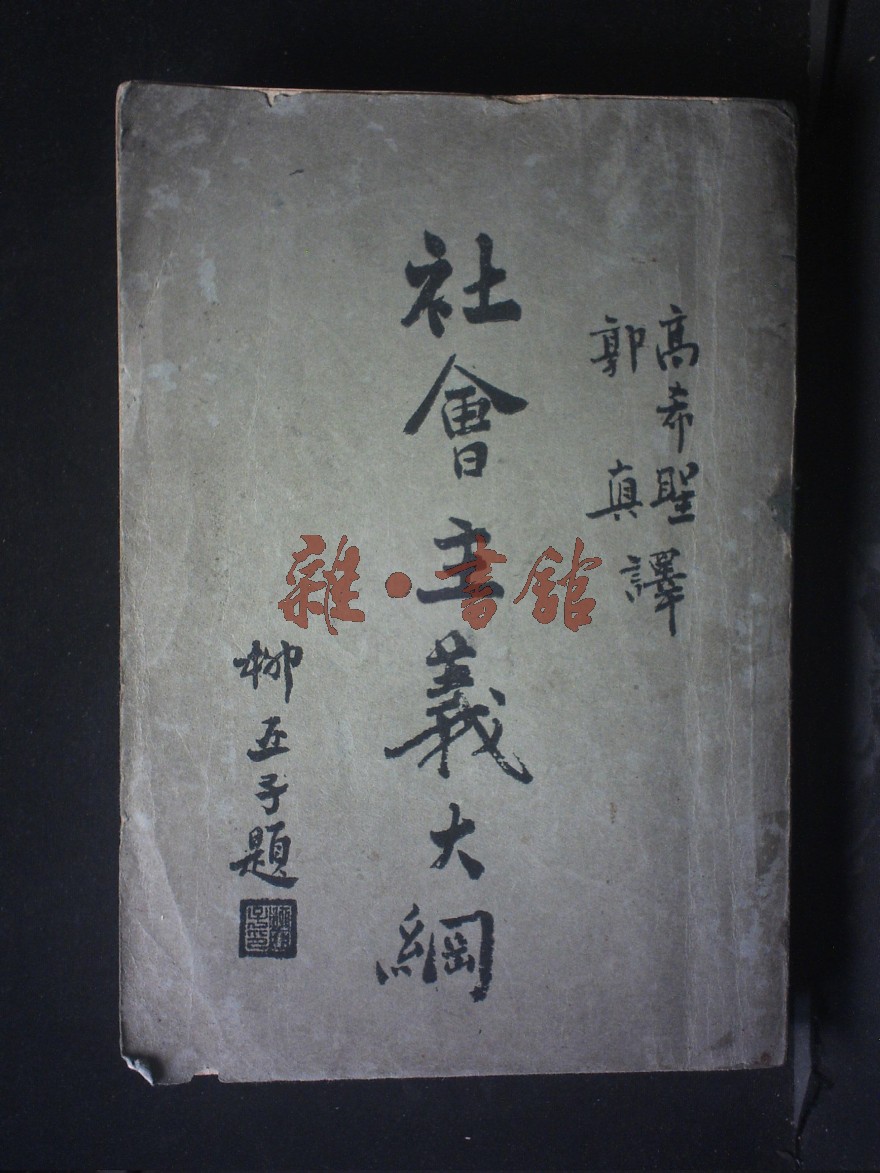 高希聖
郭真
譯
社會主義大綱
柳亞子題
雜·書館